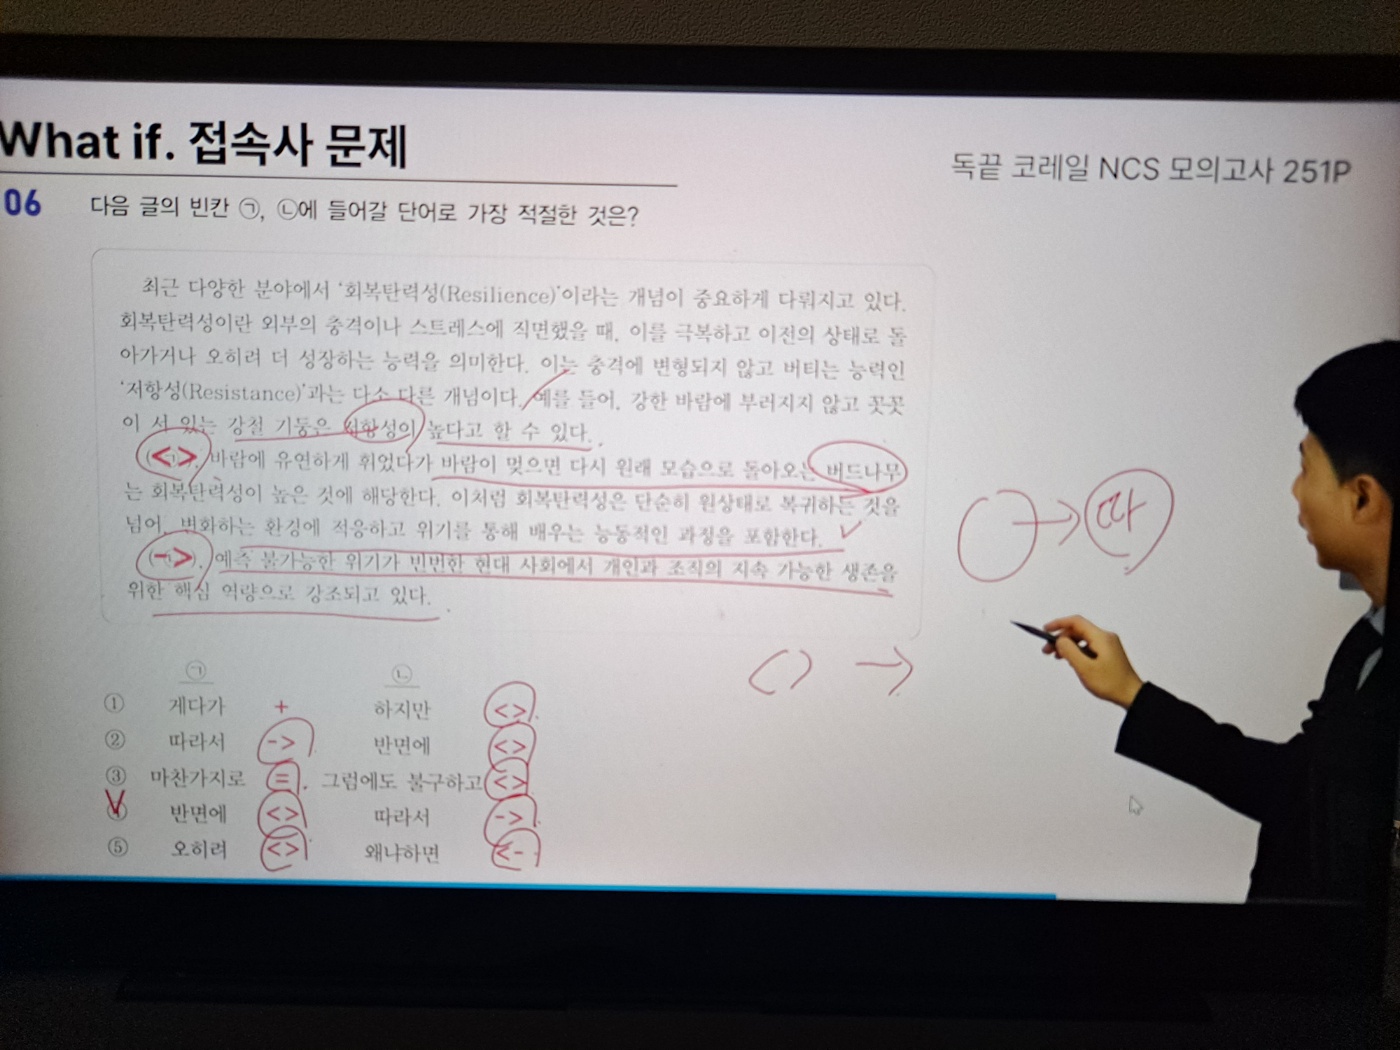 What if. 접속사 문제
독끝 코레일 NCS 모의고사 251P
06 다음 글의 빈칸 ㉠, ㉡에 들어갈 단어로 가장 적절한 것은?
최근 다양한 분야에서 '회복탄력성(Resilience)'이라는 개념이 중요하게 다뤄지고 있다.
회복탄력성이란 외부의 충격이나 스트레스에 직면했을 때, 이를 극복하고 이전의 상태로 돌
아가거나 오히려 더 성장하는 능력을 의미한다. 이는 충격에 변형되지 않고 버티는 능력인
'저항성(Resistance)'과는 다소 다른 개념이다. 예를 들어, 강한 바람에 부러지지 않고 꼿꼿
이 서 있는 강철 기둥은 저항성이 높다고 할 수 있다.
( <> ), 바람에 유연하게 휘었다가 바람이 멎으면 다시 원래 모습으로 돌아오는 버드나무
는 회복탄력성이 높은 것에 해당한다. 이처럼 회복탄력성은 단순히 원상태로 복귀하는 것을
넘어, 변화하는 환경에 적응하고 위기를 통해 배우는 능동적인 과정을 포함한다.
( -> ), 예측 불가능한 위기가 빈번한 현대 사회에서 개인과 조직의 지속 가능한 생존을
위한 핵심 역량으로 강조되고 있다.
→ 따
<> →
㉠ ㉡
① 게다가 + 하지만 <>
② 따라서 -> 반면에 <>
③ 마찬가지로 = 그럼에도 불구하고 <>
④ 반면에 <> 따라서 ->
⑤ 오히려 <> 왜냐하면 <-